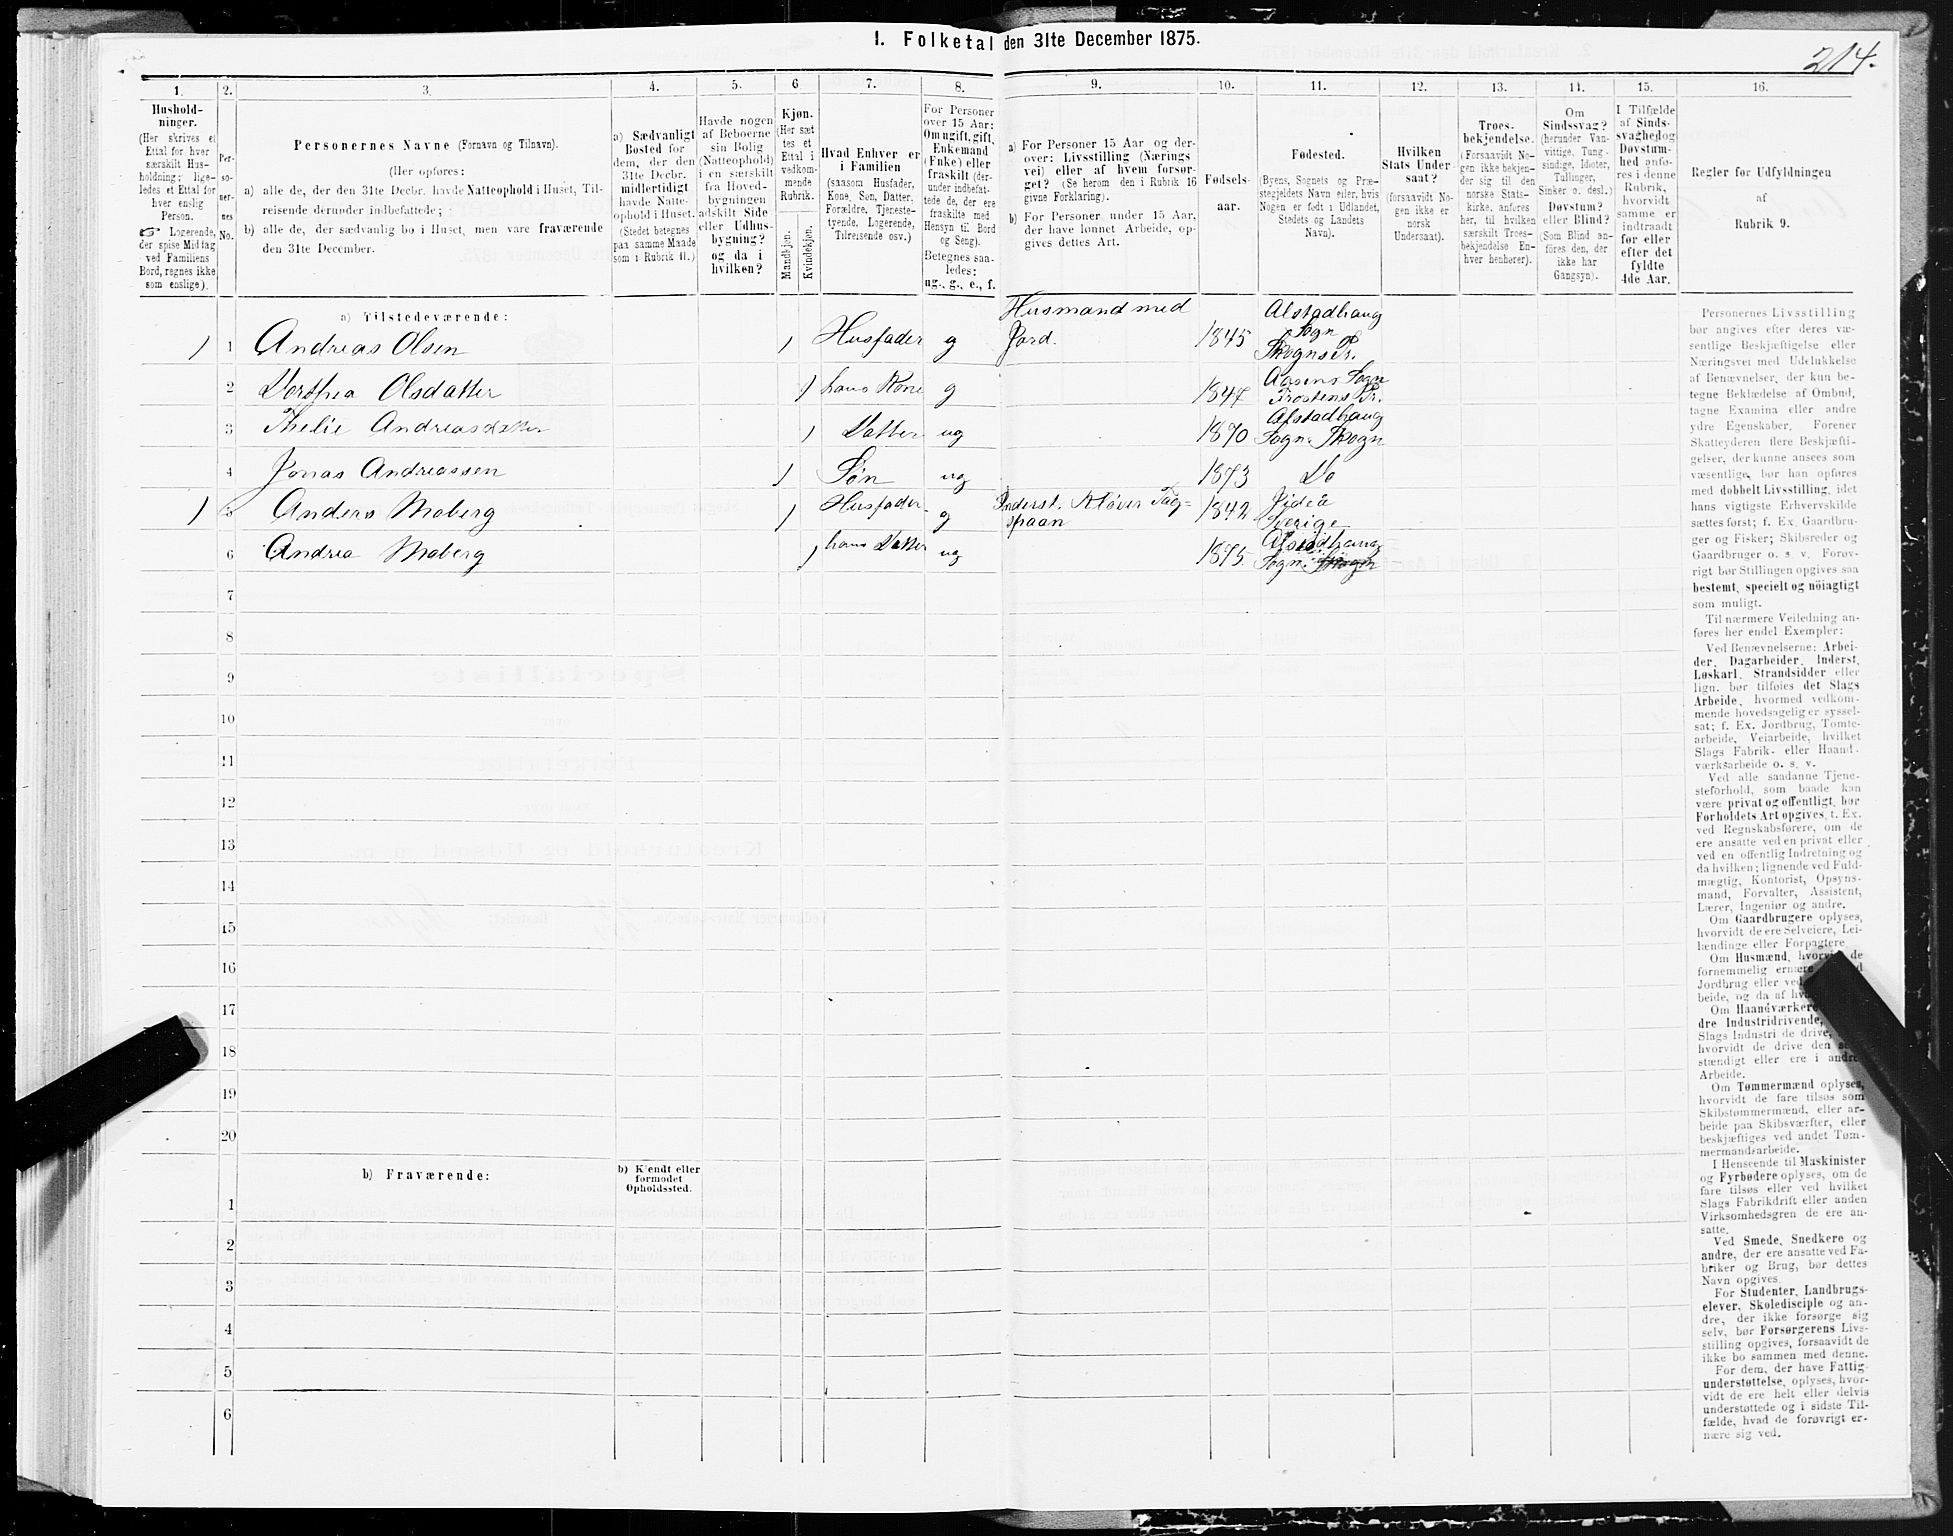 1. Folketal den 31te December 1875.
214.
1.
2.
3.
4.
5.
6
7.
8.
9.
10.
11.
12.
13.
14.
15.
16.
Hushold-
ninger.
(Her skrives et
Ettal for hver
særskilt Hus-
holdning; lige-
ledes et Ettal for
hver enslig
Person.
☞ Logerende,
der spise Middag
ved Familiens
Bord, regnes ikke
som enslige).
Per-
so-
ner-
nes
No.
Personernes Navne (Fornavn og Tilnavn).
(Her opføres:
a) alle de, der den 31te Decbr. havde Natteophold i Huset, Til-
reisende derunder indbefattede;
b) alle de, der sædvanlig bo i Huset, men vare fraværende
den 31te December.
a) Sædvanligt
Bosted for
dem, der den
31te Decbr.
midlertidigt
havde Natte-
ophold i Huset.
(Stedet betegnes
paa samme Maade
som i Rubrik 11.)
Havde nogen
af Beboerne
sin Bolig
(Natteophold)
i en særskilt
fra Hoved-
bygningen
adskilt Side
eller Udhus-
bygning?
og da i
hvilken?
Kjøn.
(Her sæt
tes et
Ettal i
vedkom-
mende
Rubrik.
Mandkjøn.
Kvindekjøn.
Hvad Enhver er
i Familien
(saasom Husfader,
Kone, Søn, Datter,
Forældre, Tjeneste-
tyende, Logerende,
Tilreisende osv.)
For Personer
over 15 Aar:
Om ugift, gift,
Enkemand
(Enke) eller
fraskilt (der-
under indbefat-
tede de, der ere
fraskilte med
Hensyn til Bord
og Seng).
Betegnes saa-
ledes:
ug., g., e., f.
a) For Personer 15 Aar og der-
over: Livsstilling (Nærings
vei) eller af hvem forsør-
get? (Se herom den i Rubrik 16
givne Forklaring).
b) For Personer under 15 Aar,
der have lønnet Arbeide, op-
gives dettes Art.
Fødsels-
aar.
Fødested.
(Byens, Sognets og Præ-
stegjeldets Navn eller, hvis
Nogen er født i Udlandet,
Stedets og Landets
Navn).
Hvilken
Stats Under-
saat?
(forsaavidt No-
gen ikke er
norsk
Undersaat).
Troes-
bekjendelse.
(Forsaavidt No-
gen ikke bekjen-
der sig til den
norske Stats-
kirke, anføres
her, til hvilken
særskilt Troes-
bekjendelse En-
hver henhører).
Om
Sindssvag?
(herunder Van-
vittige, Tung-
sindige, Idioter,
Tullinger,
Sinker o. desl.)
Døvstum?
eller Blind?
(Som Blind an-
føres den, der
ikke har
Gangsyn).
I Tilfælde
af Sinds-
svaghed og
Døvstum-
hed anfø-
res i denne
Rubrik,
hvorvidt
samme er
indtraadt
før eller
efter det
fyldte
4de Aar.
Regler for Udfyldningen
af
Rubrik 9.
a) Tilstedeværende:
1 1 Andreas Olsen 1 Husfader g Husmand med Jord. 1845 Alstadhaug Sogn Skogns Pr.
2 Dorthea Olsdatter 1 hans Kone g 1847 Aasens Sogn Frostens Pr.
3 Thelie Andreasdatter 1 Datter ug 1870 Alstadhaug Sogn. Skogn
4 Jonas Andreassen 1 Søn ug 1873 Do
1 5 Anders Moberg 1 Husfader g Inderst. Kløver Tag= spaan 1842 Sverige
6 Andrea Moberg 1 hans Datter ug 1875. Alstadhaug Sogn. Skogn
7
8
9
10
11
12
13
14
15
16
17
18
19
20
b) Fraværende:
b) Kjendt eller
formodet
Opholdssted.
1
2
3
4
5
6
Personernes Livsstilling
bør angives efter deres væ-
sentlige Beskjæftigelse eller
Næringsvei med Udelukkelse
af Benævnelser, der kun be-
tegne Beklædelse af Ombud,
tagne Examina eller andre
ydre Egenskaber. Forener
Skatteyderen flere Beskjæfti-
gelser, der kunne ansees som
væsentlige, bør han opføres
med dobbelt Livsstilling, idet
hans vigtigste Erhvervskilde
sættes først; f. Ex. Gaardbru-
ger og Fisker; Skibsreder og
Gaardbruger o. s. v. Forøv-
rigt bør Stillingen opgives saa
bestemt, specielt og nöiagtigt
som muligt.
Til nærmere Veiledning an-
føres her endel Exempler:
Ved Benævnelserne: Arbei-
der, Dagarbeider, Inderst,
Løskarl, Strandsidder eller
lign. bør tilføies det Slags
Arbeide, hvormed vedkom-
mende hovedsagelig er syssel-
sat; f. Ex. Jordbrug, Tomte-
arbeide, Veiarbeide, hvilket
Slags Fabrik- eller Haand-
værksarbeide o. s. v.
Ved alle saadanne Tjene-
steforhold, som baade kan
være privat og offentligt, bør
Forholdets Art opgives, t. Ex.
ved Regnskabsførere, om de
ere ansatte ved en privat eller
ved en offentlig Indretning og
da hvilken; lignende ved Fuld-
mægtig, Kontorist, Opsyns-
mand, Forvalter, Assistent,
Lærer, Ingeniør og andre.
Om Gaardbrugere oplyses,
hvorvidt de ere Selveiere, Lei-
lændinge eller Forpagtere
Om Husmænd, de
fornemmelig ernære
Jordbrug eller ved
beide, og da af
Om Haandværkere
dre Industridrivende,
Slags Industri de drive,
hvorvidt de drive den
stændigt eller ere i andre
Arbeide.
Om Tømmermænd oplyses,
hvorvidt de fare tilsøs som
Skibstømmermænd, eller ar-
beide paa Skibsværfter, eller
beskjæftiges ved andet Tøm-
mermandsarbeide.
I Henseende til Maskinister
og Fyrbødere oplyses, om de
fare tilsøs eller ved hvilket
Slags Fabrikdrift eller anden
Virksomhedsgren de ere an-
satte.
Ved Smede, Snedkere og
andre, der ere ansatte ved Fa-
briker og Brug, bør dettes
Navn opgives.
For Studenter, Landbrugs-
elever, Skoledisciple og an-
dre, der ikke forsørge sig
selv, bør Forsørgerens Livs-
stilling opgives, forsaavidt de
ikke bo sammen med denne.
For dem, der have Fattig-
understøttelse, oplyses, hvor-
vidt de ere helt eller delvis
understøttede og i sidste Til-
fælde, hvad de forøvrigt er-
nære sig ved.